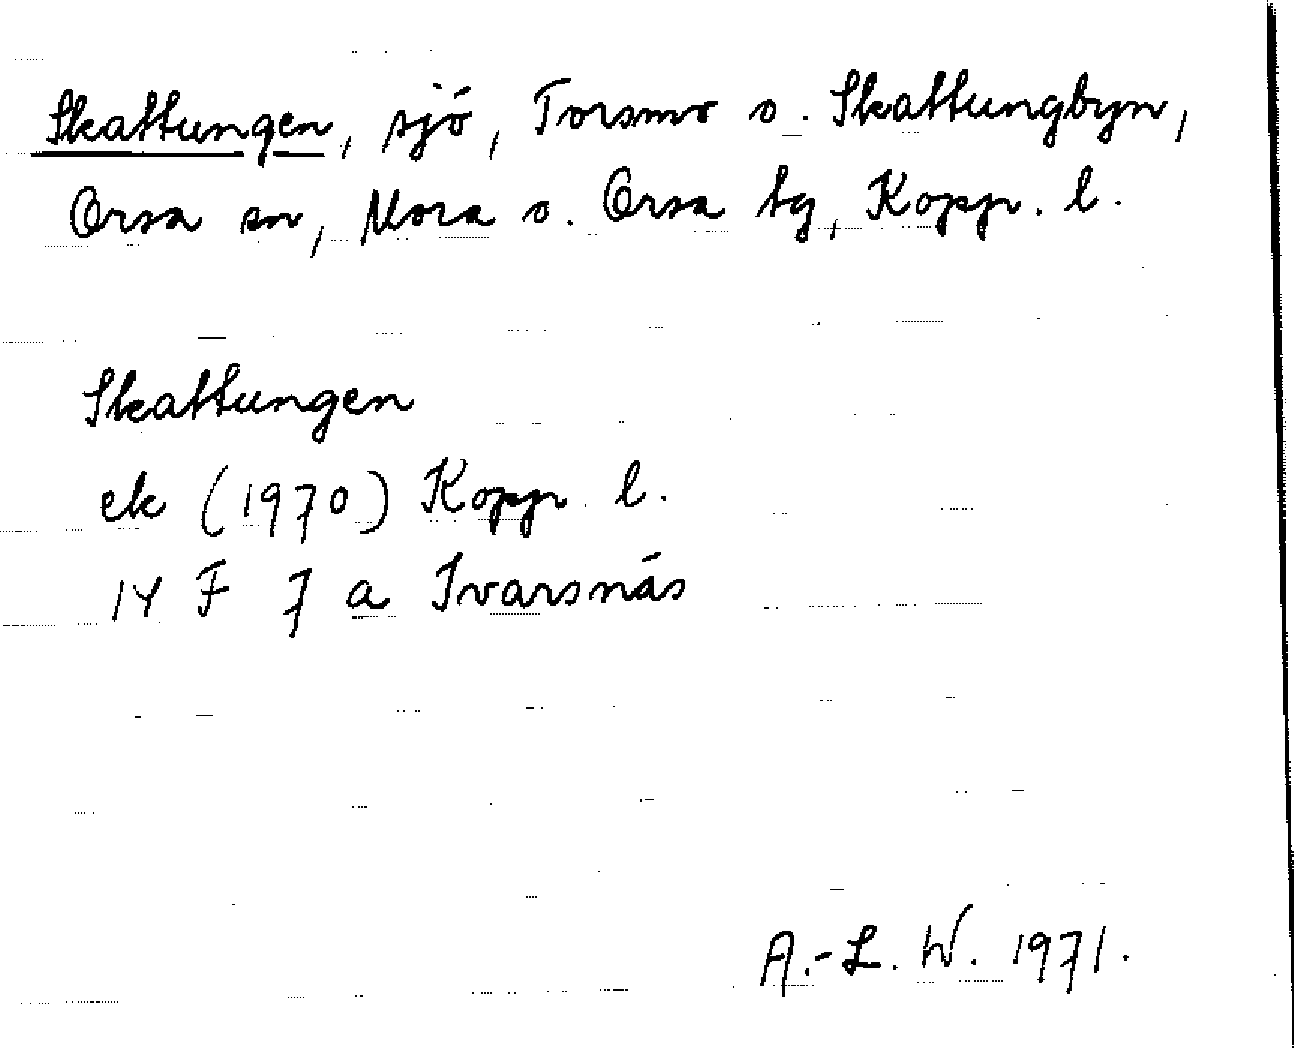 Skattungen, sjö, Torsmo o. Skattungbyn,
Orsa sn, Mora o. Orsa tg, Kopp. l.
Skattungen
ek (1970) Kopp l.
14 F 7 a Ivarsnäs
A.-L. W. 1971.